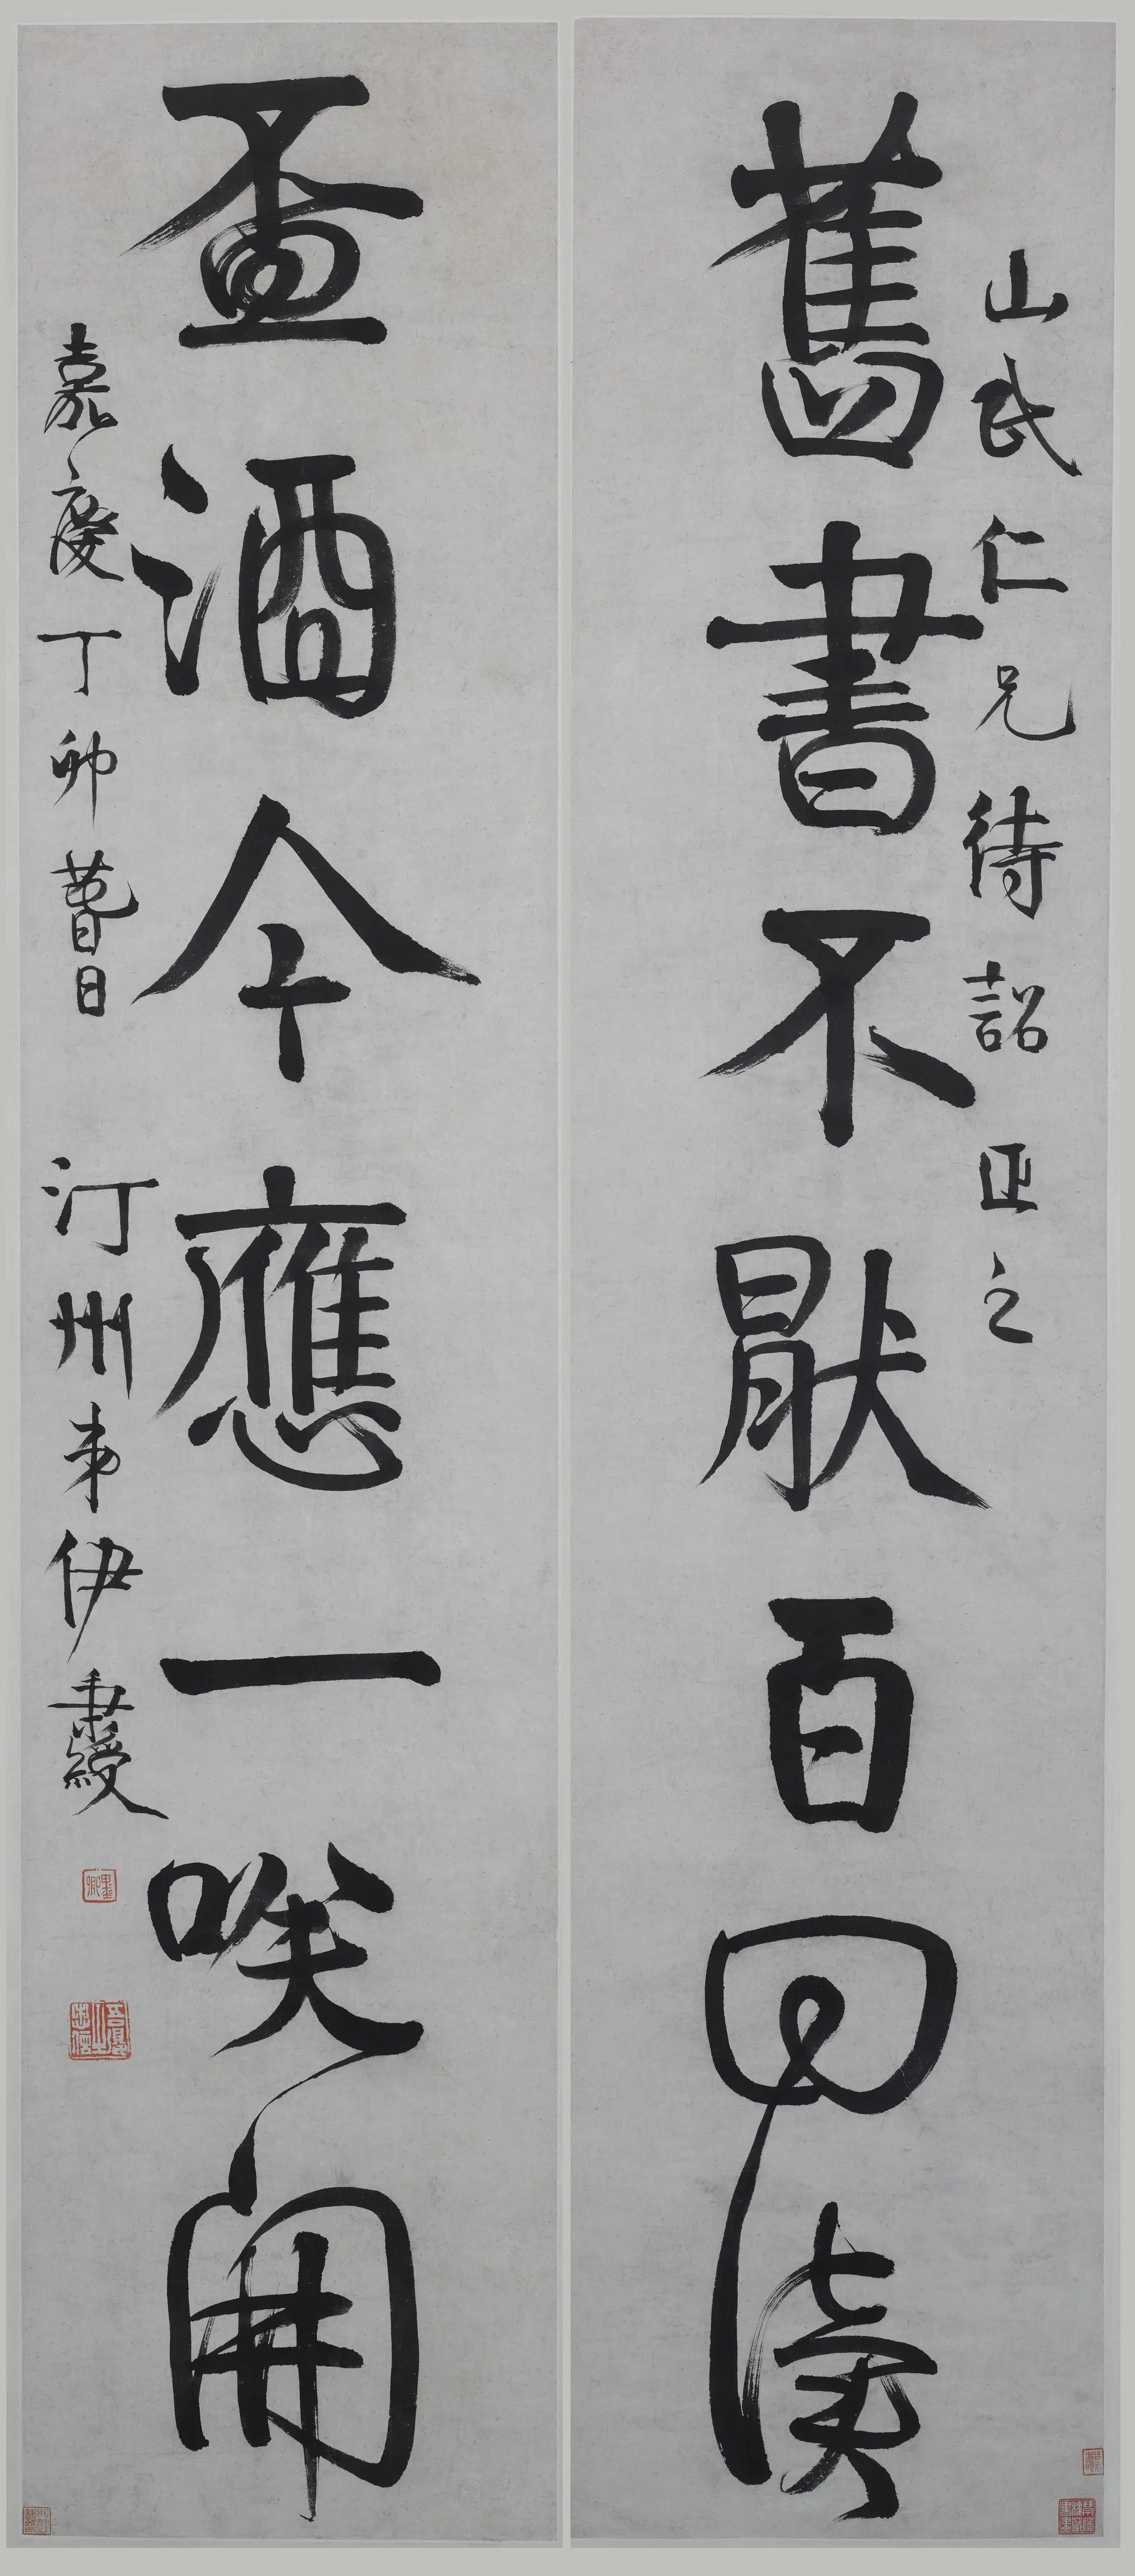 山民仁兄待詔正之
舊書不猒百回讀
盃酒今應一咲開
嘉慶丁卯暮春日 汀州弟伊秉綬
墨卿